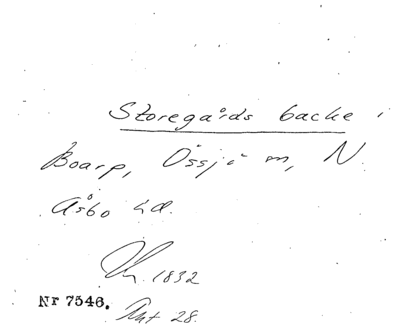 Storegårds backe i
Boarp, Össjö sn, N.
Åsbo hd.
1832
Nr 7546. Akt 28.